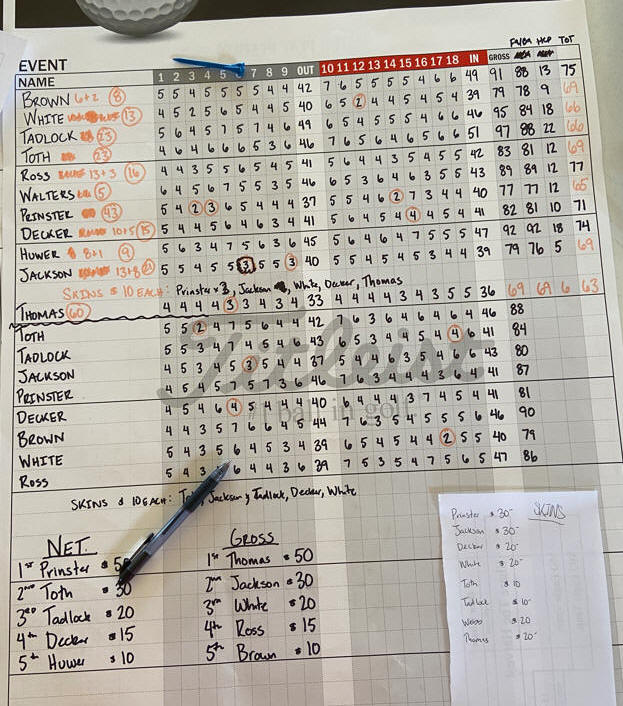 EVENT
NAME 1 2 3 4 5 6 7 8 9 OUT 10 11 12 13 14 15 16 17 18 IN GROSS HCP TOT
BROWN 6+2 8 5 5 4 5 5 5 5 4 4 42 7 6 5 5 5 5 4 6 6 49 91 88 13 75
WHITE 13 4 5 2 5 6 5 4 4 5 40 6 5 2 4 4 5 4 5 4 39 79 78 9 69
TADLOCK 23 5 6 4 5 7 5 7 4 6 49 6 5 4 5 5 5 4 6 6 46 95 84 18 66
TOTH 23 4 6 4 6 6 6 5 3 6 46 7 6 5 6 4 6 5 6 6 51 97 88 22 66
ROSS 13+3 16 4 4 3 5 5 6 5 4 5 41 5 6 4 4 3 5 4 5 5 42 83 81 12 69
WALTERS 5 6 4 5 6 7 5 5 3 5 46 6 5 3 6 4 6 3 5 5 43 89 89 12 77
PRINSTER 43 5 4 2 3 6 5 4 4 4 37 5 5 4 6 2 7 3 4 4 40 77 77 12 65
DECKER 10+5 15 5 4 4 5 6 4 6 3 4 41 5 4 5 5 4 4 5 4 41 82 81 10 71
HUWER 8+1 9 5 6 3 4 7 5 6 3 6 45 5 6 4 6 4 7 5 5 5 47 92 92 18 74
JACKSON 13+8 21 5 5 4 5 5 3 5 5 3 40 5 5 4 5 4 5 3 4 4 39 79 76 5 69
SKINS $ 10 EACH: Prinster x 3, Jackson, White, Decker, Thomas
THOMAS 60 4 4 4 4 3 3 4 3 4 33 4 4 4 4 3 4 3 5 5 36 69 69 6 63
TOTH 5 5 2 4 7 5 6 4 4 42 7 6 3 6 4 6 4 6 4 46 88
TADLOCK 5 5 3 4 7 4 5 4 6 43 6 5 3 4 4 5 4 4 6 41 84
JACKSON 4 5 3 4 5 3 5 4 4 37 5 4 4 6 3 5 4 6 6 43 80
PRINSTER 4 5 4 5 7 5 7 3 6 46 7 6 3 4 4 4 3 6 4 41 87
DECKER 4 5 4 6 4 5 4 4 4 40 6 4 4 4 3 7 4 5 4 41 81
BROWN 4 4 3 5 7 6 6 4 5 44 7 6 3 5 4 5 5 5 6 46 90
WHITE 5 4 3 5 6 4 5 3 4 39 6 5 4 5 4 4 2 5 5 40 79
ROSS 5 4 3 6 4 4 3 6 39 7 5 3 5 4 7 5 6 5 47 86
Titleist
#1 ball in golf.
SKINS $ 10 EACH: Jackson, Tadlock, Decker, White
NET
1st Prinster $ 5
2nd Toth $ 30
3rd Tadlock $ 20
4th Decker $ 15
5th Huwer $ 10
GROSS
1st Thomas $ 50
2nd Jackson $ 30
3rd White $ 20
4th Ross $ 15
5th Brown $ 10
SKINS
Prinster $ 30-
Jackson $ 30-
Decker $ 20-
White $ 20-
Toth $ 10
Tadlock $ 10-
Webb $ 20
Thomas $ 20-